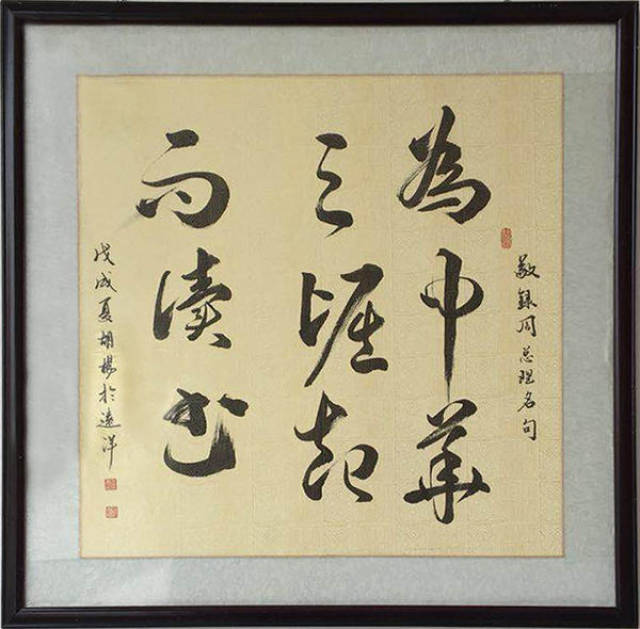 敬録周总理名句
為中華
之崛起
而读书
戊戌夏胡楊於遠洋